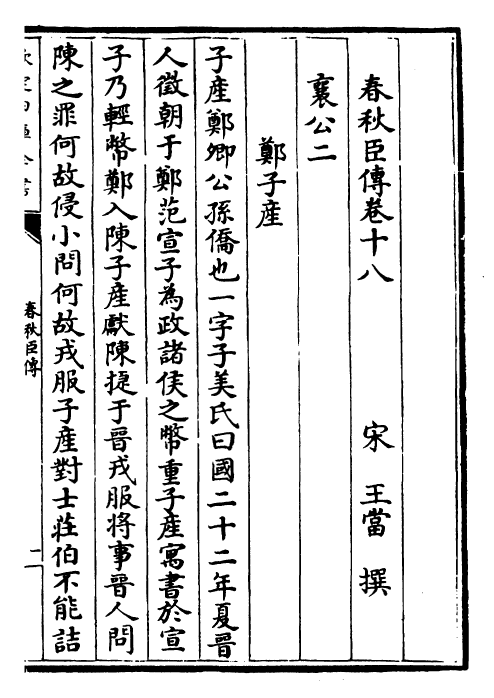 春秋臣傳卷十八　　宋　王當　撰
襄公二
鄭子產
子產鄭卿公孫僑也一字子美氏曰國二十二年夏晉
人徵朝于鄭范宣子為政諸侯之幣重子產寓書於宣
子乃輕幣鄭入陳子產獻陳捷于晉戎服將事晉人問
陳之罪何故侵小問何故戎服子產對士莊伯不能詰
春秋臣傳
二